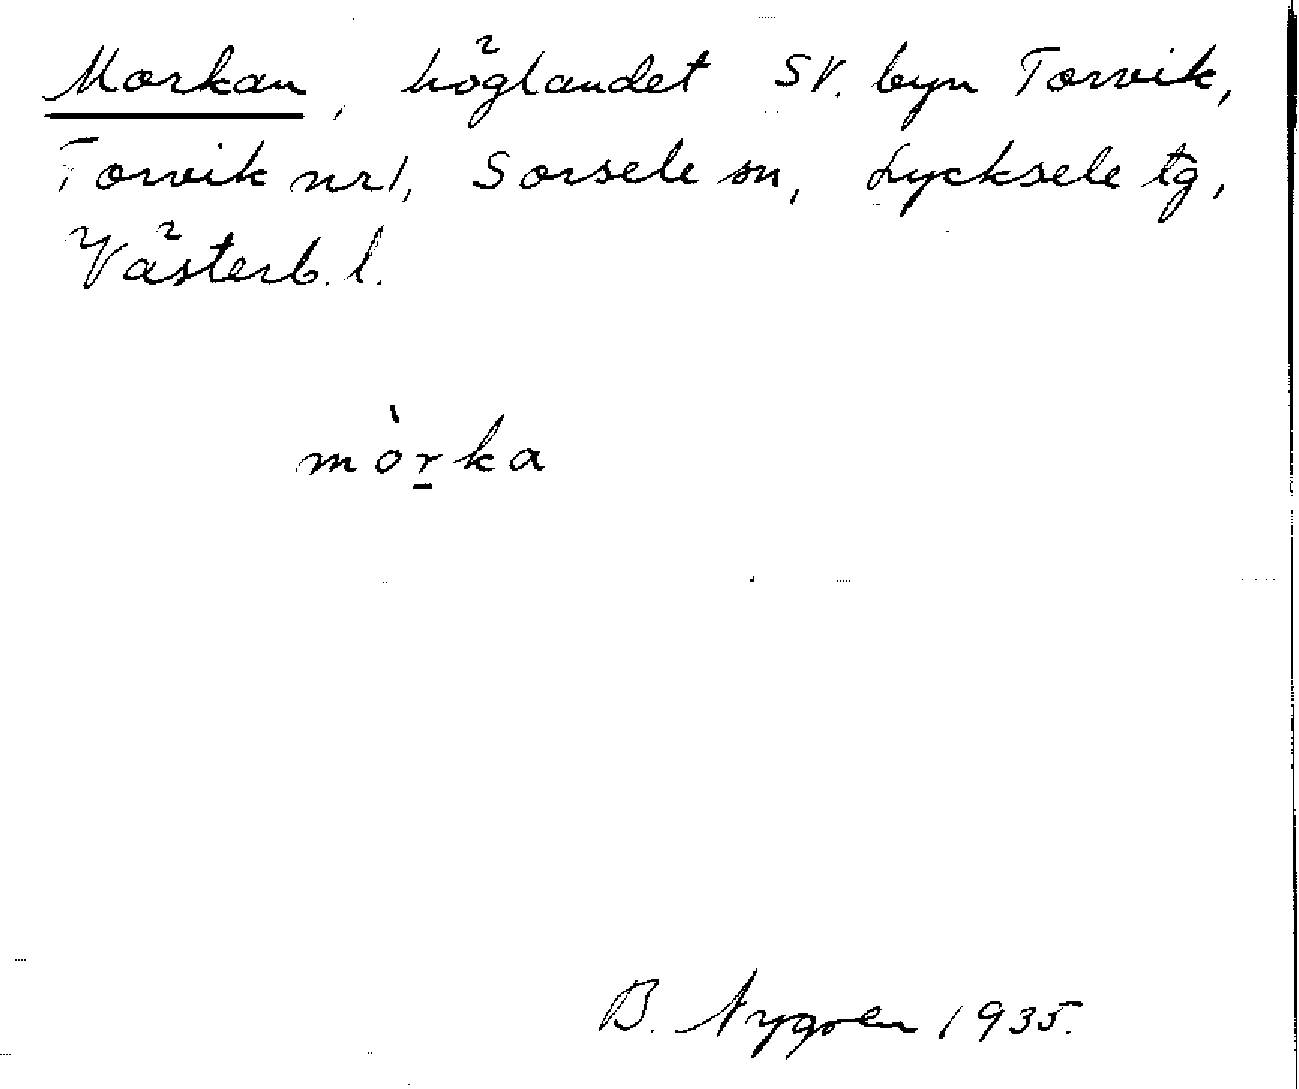 Morkan, höglandet SV. byn Torvik,
Torvik nr 1, Sorsele sn, Lycksele tg,
Västerb. l.
mòr̠ka
B. Nygren 1935.